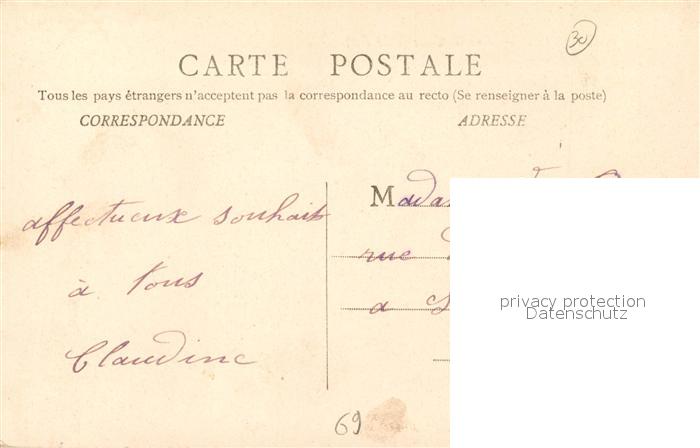 30
CARTE POSTALE
Tous les pays étrangers n'acceptent pas la correspondance au recto (Se renseigner à la poste)
CORRESPONDANCE
ADRESSE
affectueux souhait
à tous
Claudine
Mada
rue
a S
privacy protection
Datenschutz
69